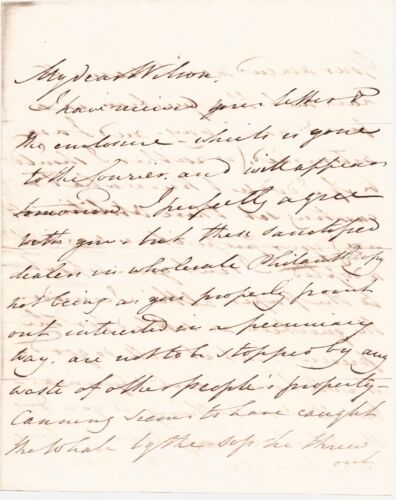 My dear Wilson.
I have received your letter &
the enclosure - which is gone
to the Courier, and will appear
tomorrow. I perfectly agree
with you - but these sanctified
dealers in wholesale Philanthropy
not being as you properly point
out interested in a pecuniary
way, are not to be stopped by any
waste of other people's property -
Canning seems to have caught
the Whale by the sop he threw
out